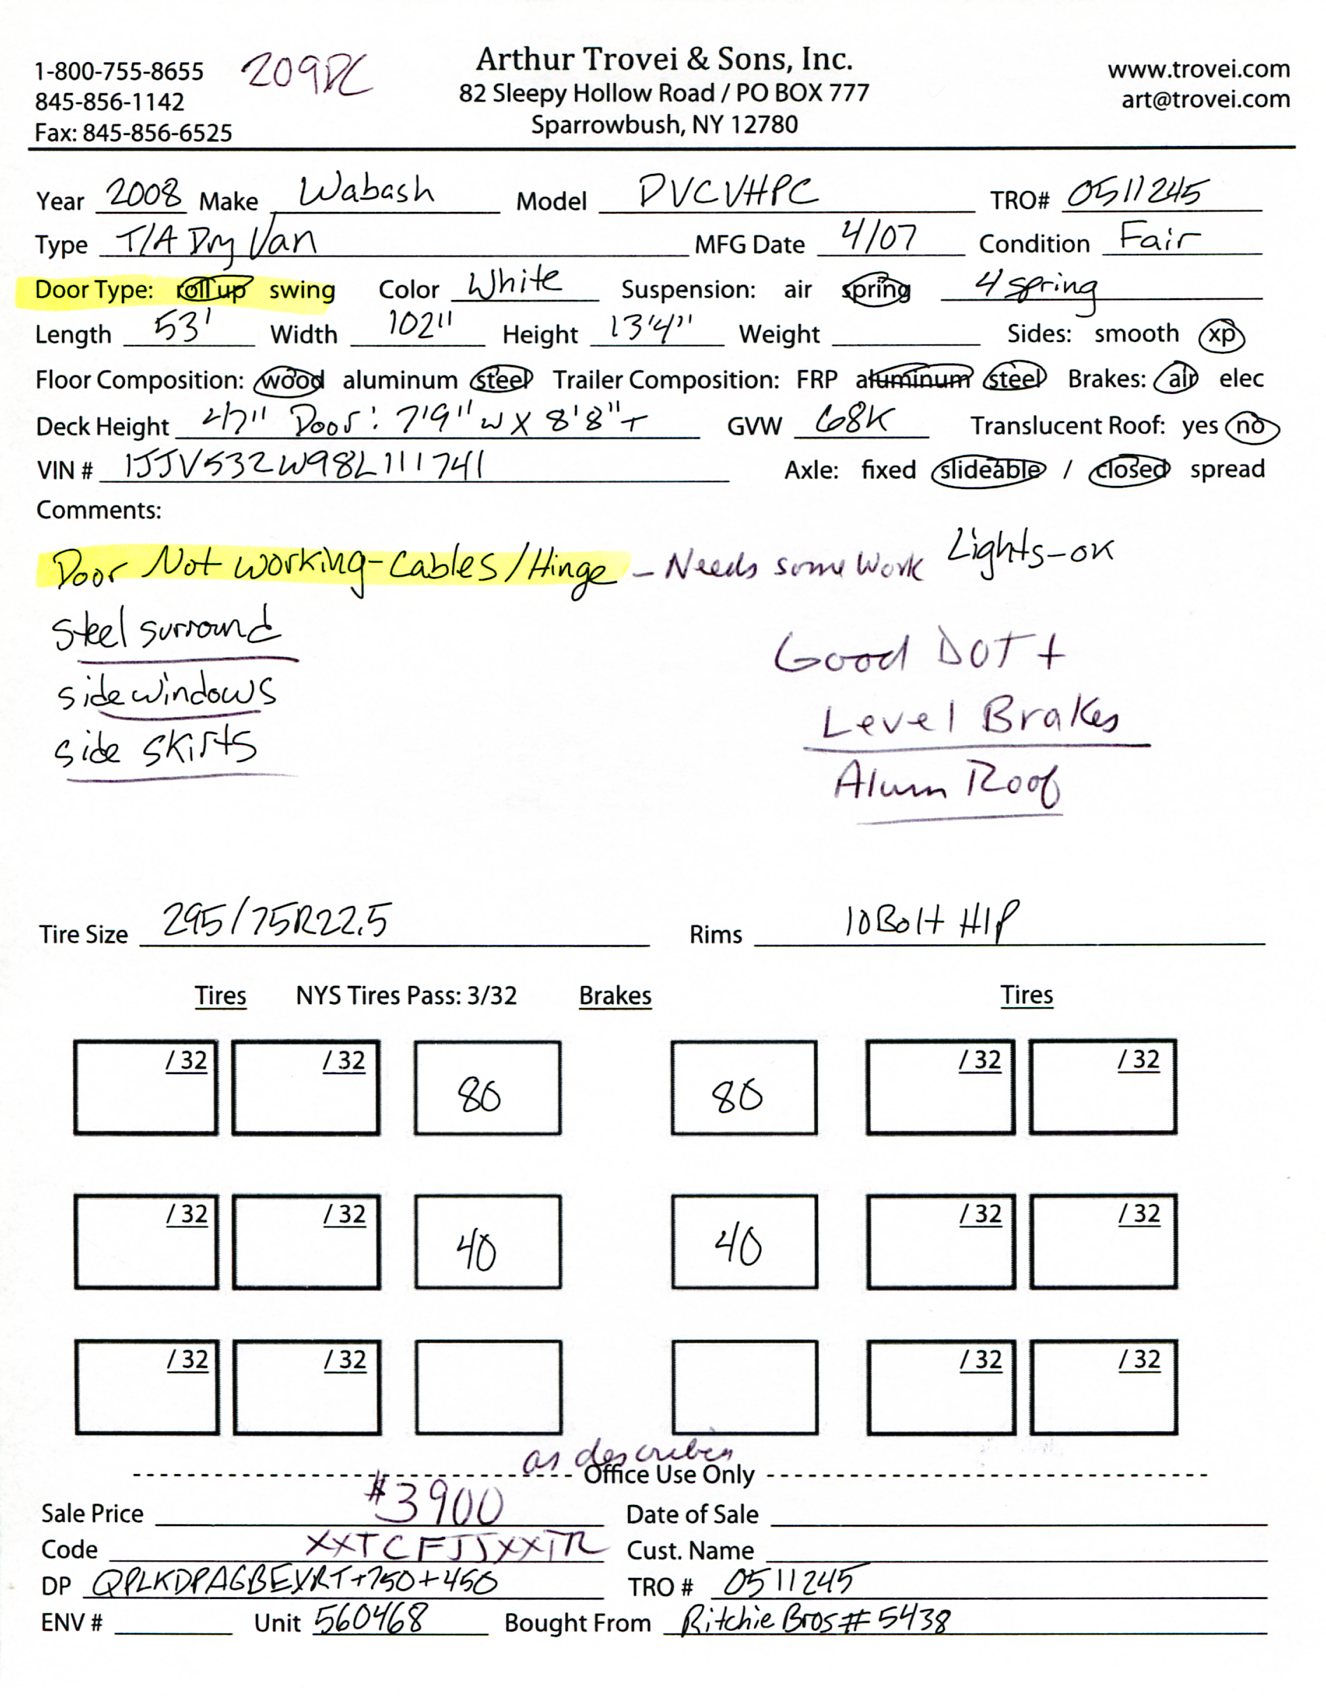 1-800-755-8655 209DC Arthur Trovei & Sons, Inc. www.trovei.com
845-856-1142 82 Sleepy Hollow Road / PO BOX 777 art@trovei.com
Fax: 845-856-6525 Sparrowbush, NY 12780
Year 2008 Make Wabash Model DVCVHPC TRO# 0511245
Type T/A Dry Van MFG Date 4/07 Condition Fair
Door Type: roll up swing Color White Suspension: air spring 4 spring
Length 53' Width 102" Height 13'4" Weight Sides: smooth xp
Floor Composition: wood aluminum steel Trailer Composition: FRP aluminum steel Brakes: air elec
Deck Height 47" Door: 7'9"w x 8'8"T GVW 68K Translucent Roof: yes no
VIN # 1JJV532W98L111741 Axle: fixed slideable / closed spread
Comments:
Door Not working-cables/Hinge - Needs some Work Lights-ok
steel surround
Good DOT +
side windows
Level Brakes
side skirts
Alum Roof
Tire Size 295/75R22.5 Rims 10 Bolt H/P
Tires NYS Tires Pass: 3/32 Brakes Tires
/ 32 / 32 80 80 / 32 / 32
/ 32 / 32 40 40 / 32 / 32
/ 32 / 32 / 32 / 32
as
Office Use Only
Sale Price $3900 Date of Sale
Code XXTCFJJXXTR Cust. Name
DP QPLKDPAGBEXRT+750+450 TRO # 0511245
ENV # Unit 560468 Bought From Ritchie Bros # 5438